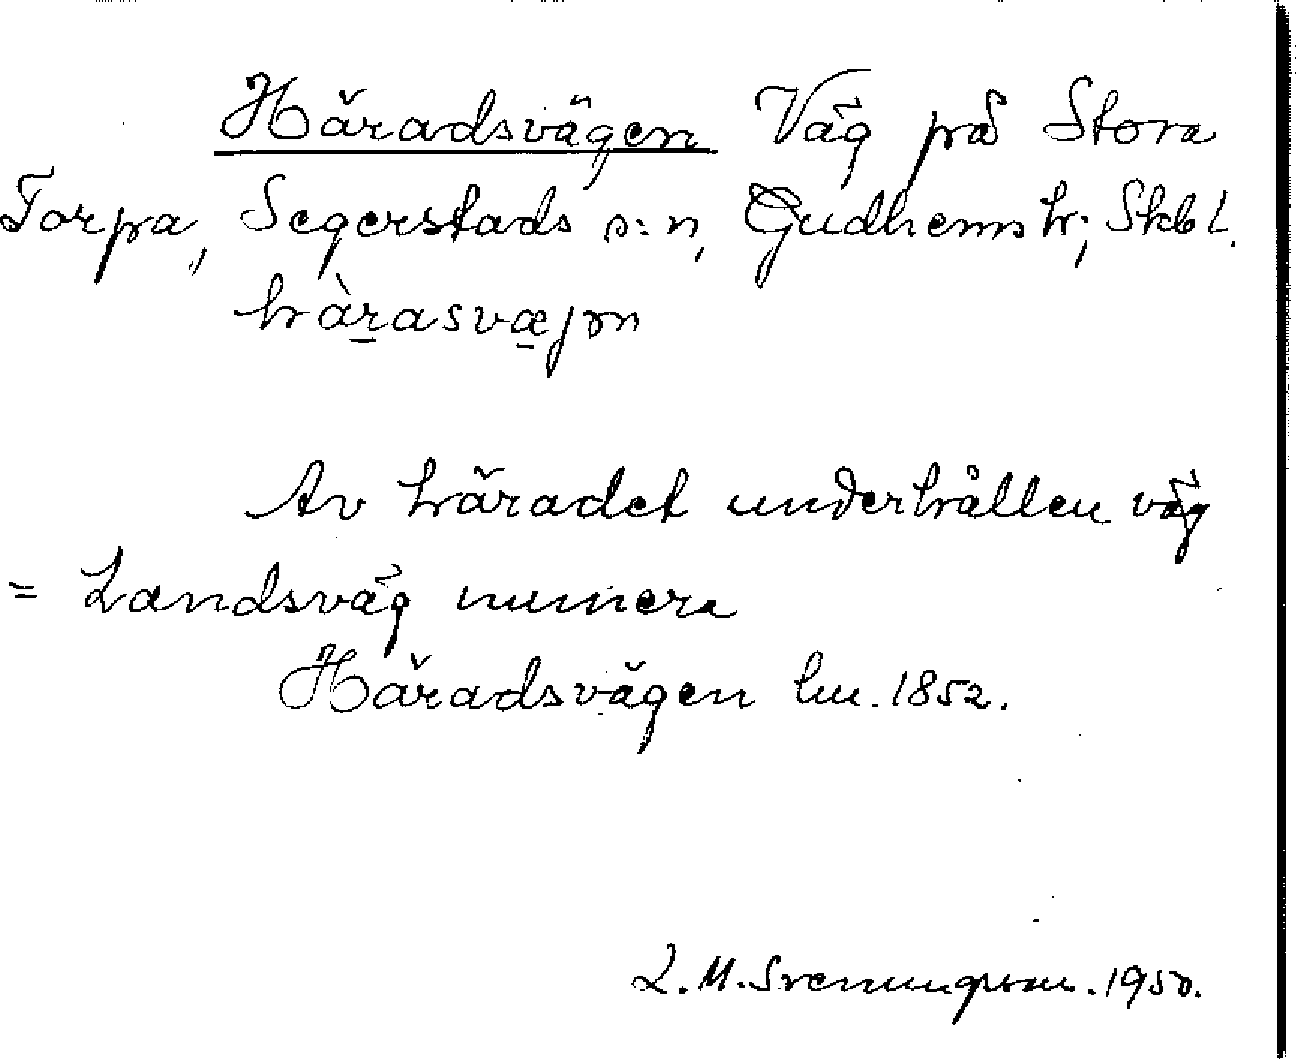 Häradsvägen Väg på Stora
Torpa, Segerstads s:n, Gudhems hr; Skbl.
hàrasvæjən
Av häradet underhållen väg
= Landsväg numera
Häradsvägen lm. 1852.
L. M. Svenungsson. 1950.